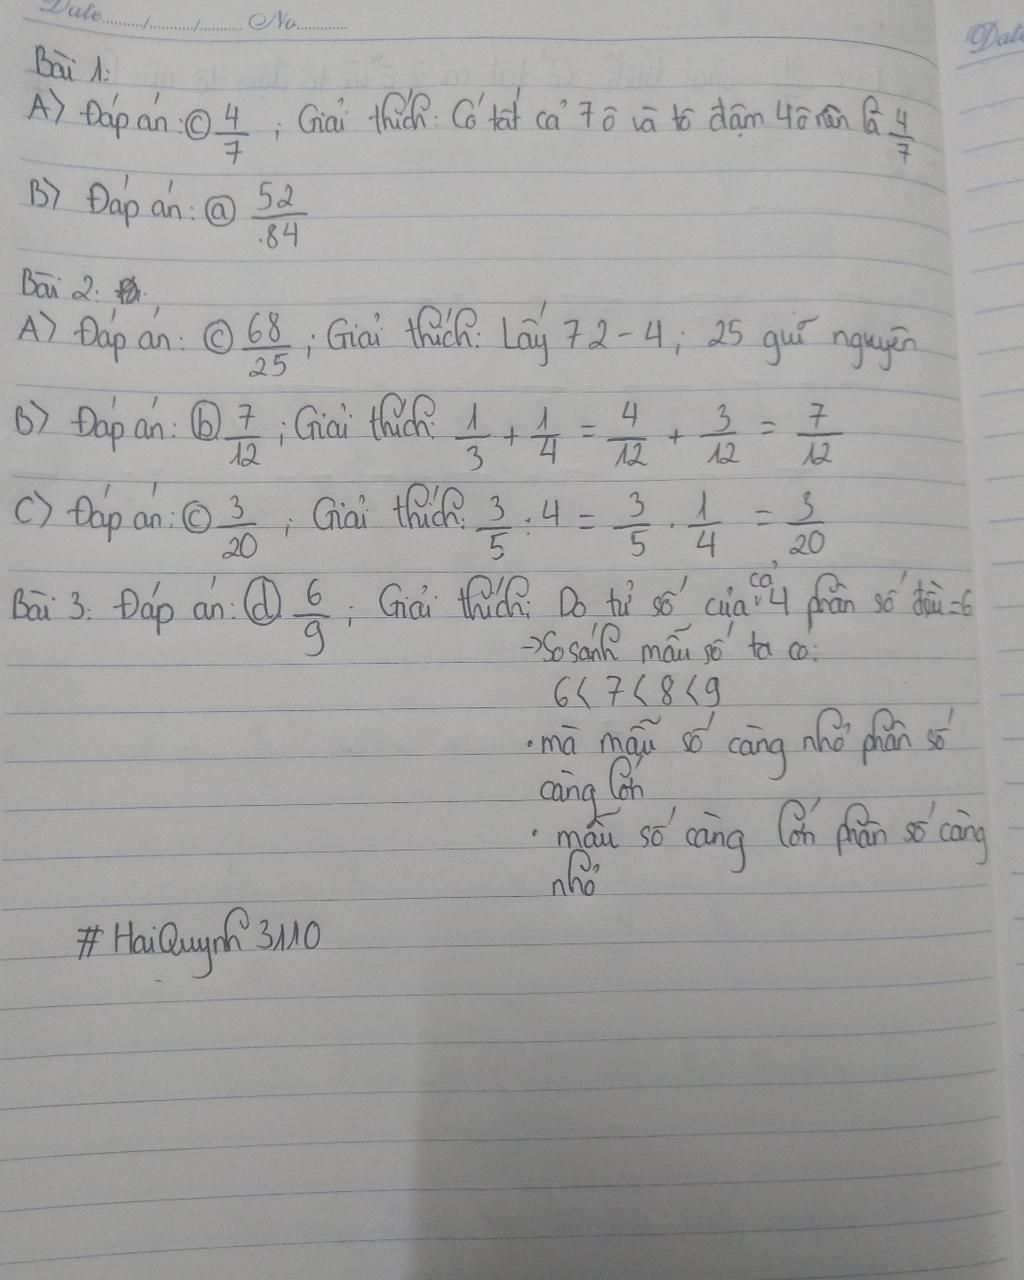 Date........../........../.......... No............
Date
Bài 1:
A) Đáp án: ⓒ 4/7 ; Giải thích: Có tất cả 7 ô và tô đậm 4 ô nên là 4/7
B) Đáp án: ⓐ 52/84
Bài 2:
A) Đáp án: ⓒ 68/25 ; Giải thích: Lấy 72 - 4 ; 25 giữ nguyên
B) Đáp án: ⓑ 7/12 ; Giải thích: 1/3 + 1/4 = 4/12 + 3/12 = 7/12
C) Đáp án: ⓒ 3/20 ; Giải thích: 3/5 : 4 = 3/5 . 1/4 = 3/20
Bài 3: Đáp án: ⓓ 6/9 ; Giải thích: Do tử số của cả 4 phân số đều = 6
→ So sánh mẫu số ta có:
6 < 7 < 8 < 9
• mà mẫu số càng nhỏ phân số
càng lớn
• mẫu số càng lớn phân số càng
nhỏ
# HaiQuynh 3110